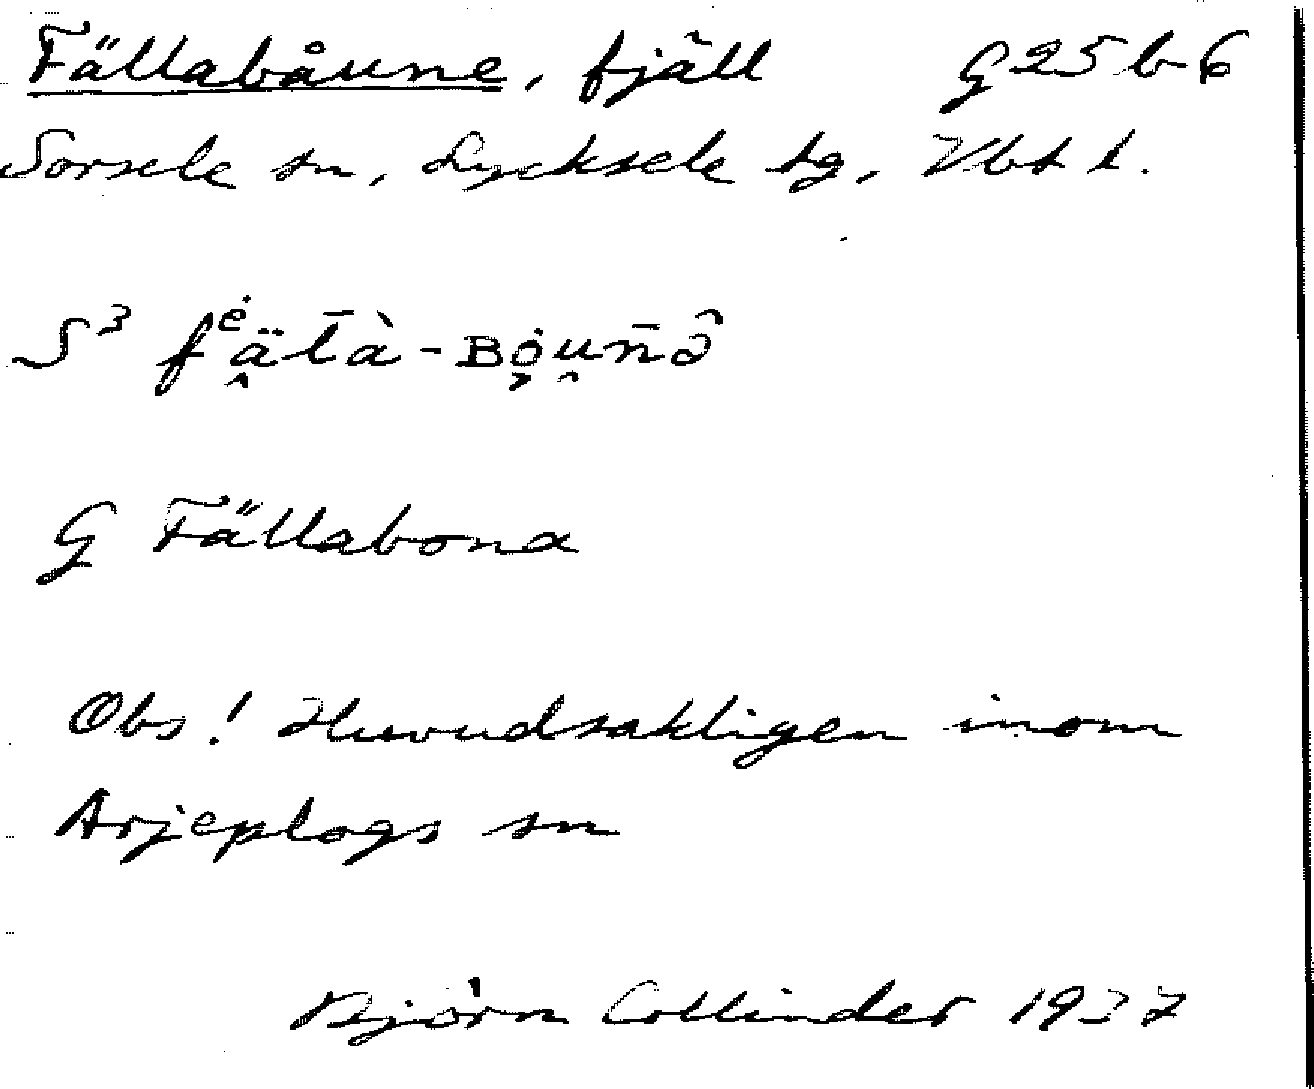 Fällabåune, fjäll G 25 b-6
Sorsele sn, Lycksele tg, Vbt l.
S³ fᵉ̇ä̭l̄à-ʙȯ̤u̯n̄ə̑
G Fällabona
Obs! Huvudsakligen inom
Arjeplogs sn
Björn Collinder 1937